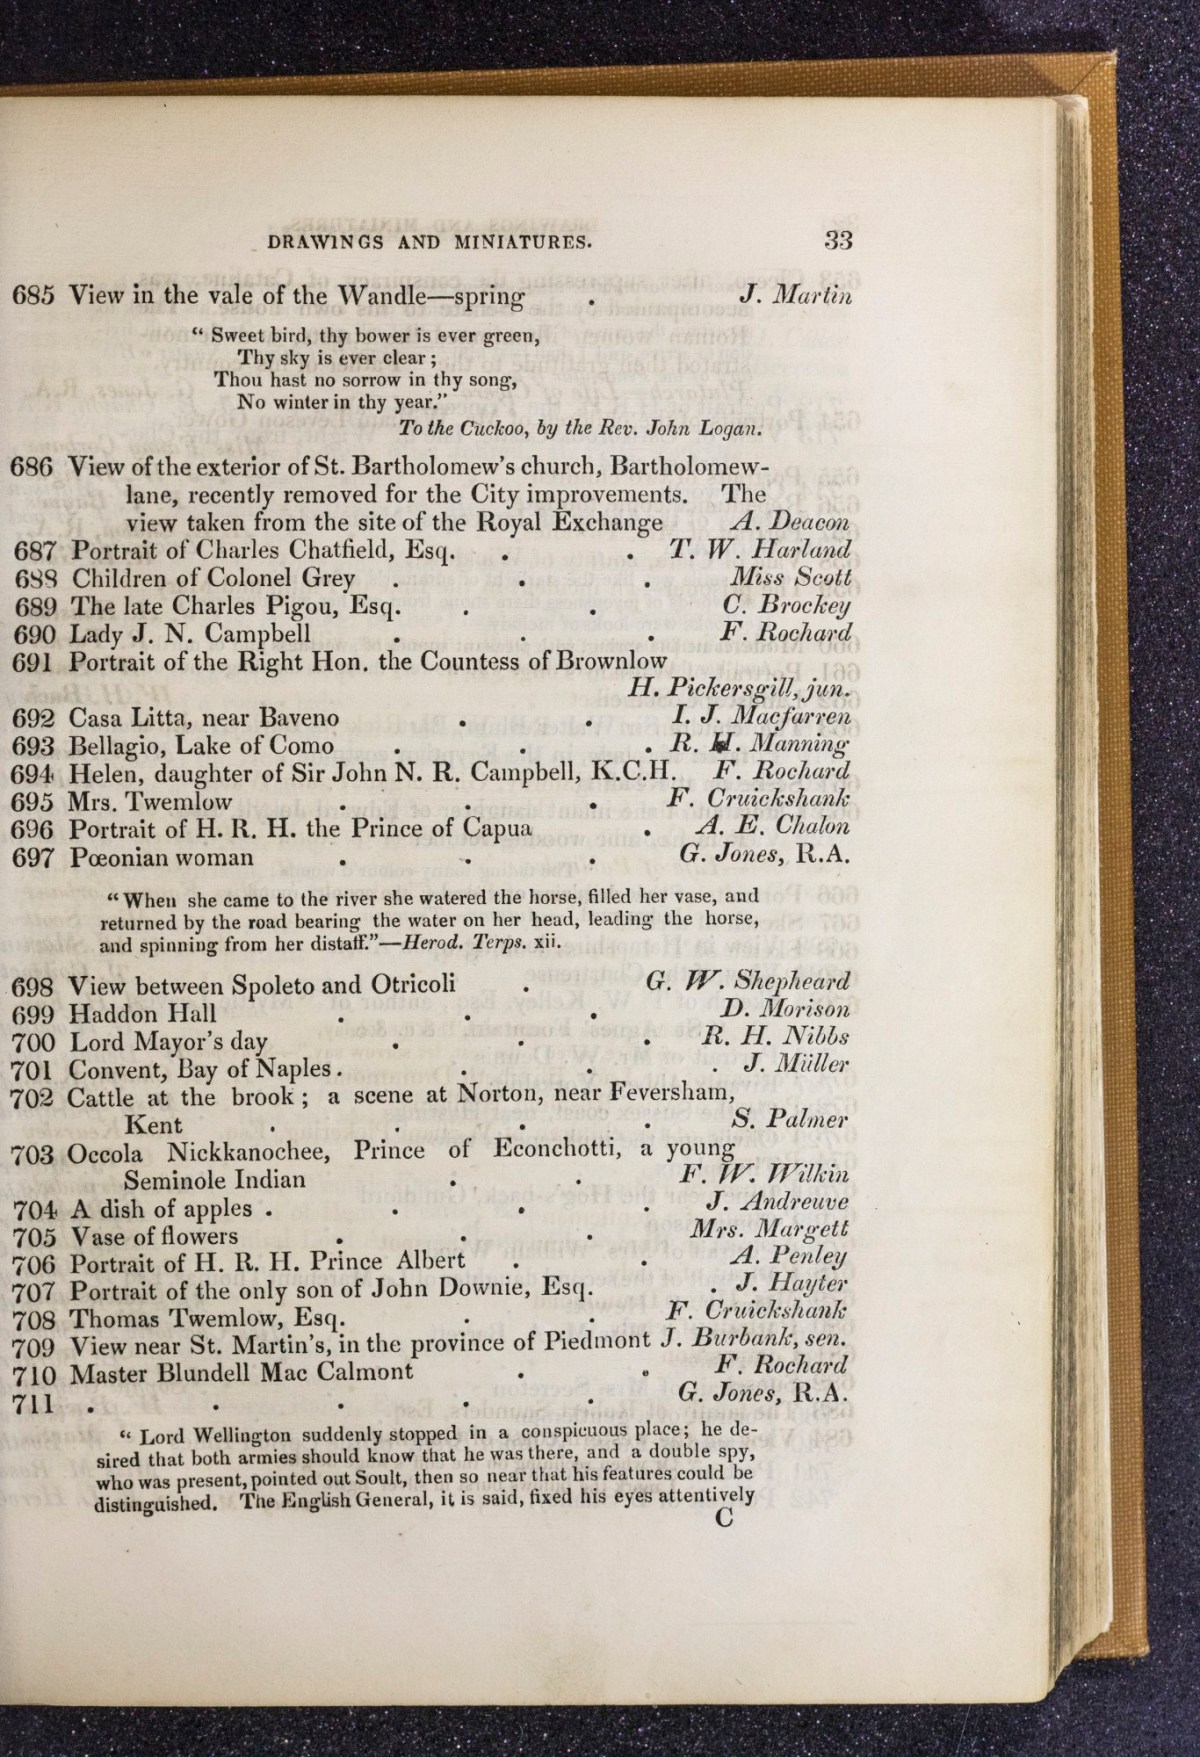 DRAWINGS AND MINIATURES. 33
685 View in the vale of the Wandle—spring . J. Martin
“ Sweet bird, thy bower is ever green,
Thy sky is ever clear ;
Thou hast no sorrow in thy song,
No winter in thy year.”
To the Cuckoo, by the Rev. John Logan.
686 View of the exterior of St. Bartholomew’s church, Bartholomew-
lane, recently removed for the City improvements. The
view taken from the site of the Royal Exchange A. Deacon
687 Portrait of Charles Chatfield, Esq. . . T. W. Harland
688 Children of Colonel Grey . . . Miss Scott
689 The late Charles Pigou, Esq. . . C. Brockey
690 Lady J. N. Campbell . . . F. Rochard
691 Portrait of the Right Hon. the Countess of Brownlow
H. Pickersgill, jun.
692 Casa Litta, near Baveno . . I. J. Macfarren
693 Bellagio, Lake of Como . . . R. H. Manning
694 Helen, daughter of Sir John N. R. Campbell, K.C.H. F. Rochard
695 Mrs. Twemlow . . . F. Cruickshank
696 Portrait of H. R. H. the Prince of Capua . A. E. Chalon
697 Pœonian woman . . . G. Jones, R.A.
“ When she came to the river she watered the horse, filled her vase, and
returned by the road bearing the water on her head, leading the horse,
and spinning from her distaff.”—Herod. Terps. xii.
698 View between Spoleto and Otricoli . G. W. Shepheard
699 Haddon Hall . . . D. Morison
700 Lord Mayor’s day . . . R. H. Nibbs
701 Convent, Bay of Naples . . . . J. Müller
702 Cattle at the brook ; a scene at Norton, near Feversham,
Kent . . . . S. Palmer
703 Occola Nickkanochee, Prince of Econchotti, a young
Seminole Indian . . F. W. Wilkin
704 A dish of apples . . . . J. Andreuve
705 Vase of flowers . . . Mrs. Margett
706 Portrait of H. R. H. Prince Albert . . A. Penley
707 Portrait of the only son of John Downie, Esq. . J. Hayter
708 Thomas Twemlow, Esq. . . F. Cruickshank
709 View near St. Martin’s, in the province of Piedmont J. Burbank, sen.
710 Master Blundell Mac Calmont . . F. Rochard
711 . . . . . G. Jones, R.A.
“ Lord Wellington suddenly stopped in a conspicuous place; he de-
sired that both armies should know that he was there, and a double spy,
who was present, pointed out Soult, then so near that his features could be
distinguished. The English General, it is said, fixed his eyes attentively
C